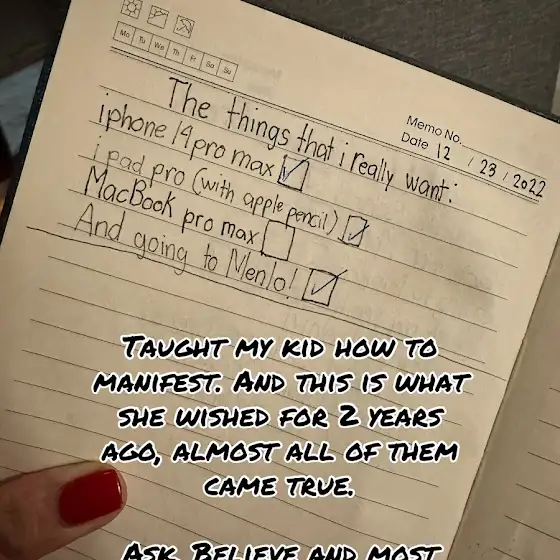 Mo Tu We Th Fr Sa Su
Memo No.
Date 12 / 23 / 2022
The things that i really want:
iphone 14 pro max
ipad pro (with apple pencil)
MacBook pro max
And going to Menlo!
TAUGHT MY KID HOW TO
MANIFEST. AND THIS IS WHAT
SHE WISHED FOR 2 YEARS
AGO, ALMOST ALL OF THEM
CAME TRUE.
ASK, BELIEVE AND MOST